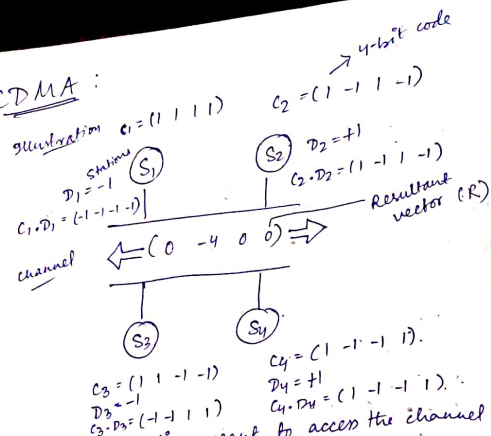 CDMA :
→ 4-bit code
Illustration C1 = (1 1 1 1)
C2 = (1 -1 1 -1)
Stations S1
S2 D2 = +1
D1 = -1
C2.D2 = (1 -1 1 -1)
C1.D1 = (-1 -1 -1 -1)
Resultant vector (R)
channel
(0 -4 0 0)
S3
S4
C3 = (1 1 -1 -1)
D3 = -1
C3.D3 = (-1 -1 1 1)
C4 = (1 -1 -1 1).
D4 = +1
C4.D4 = (1 -1 -1 1).
to access the channel